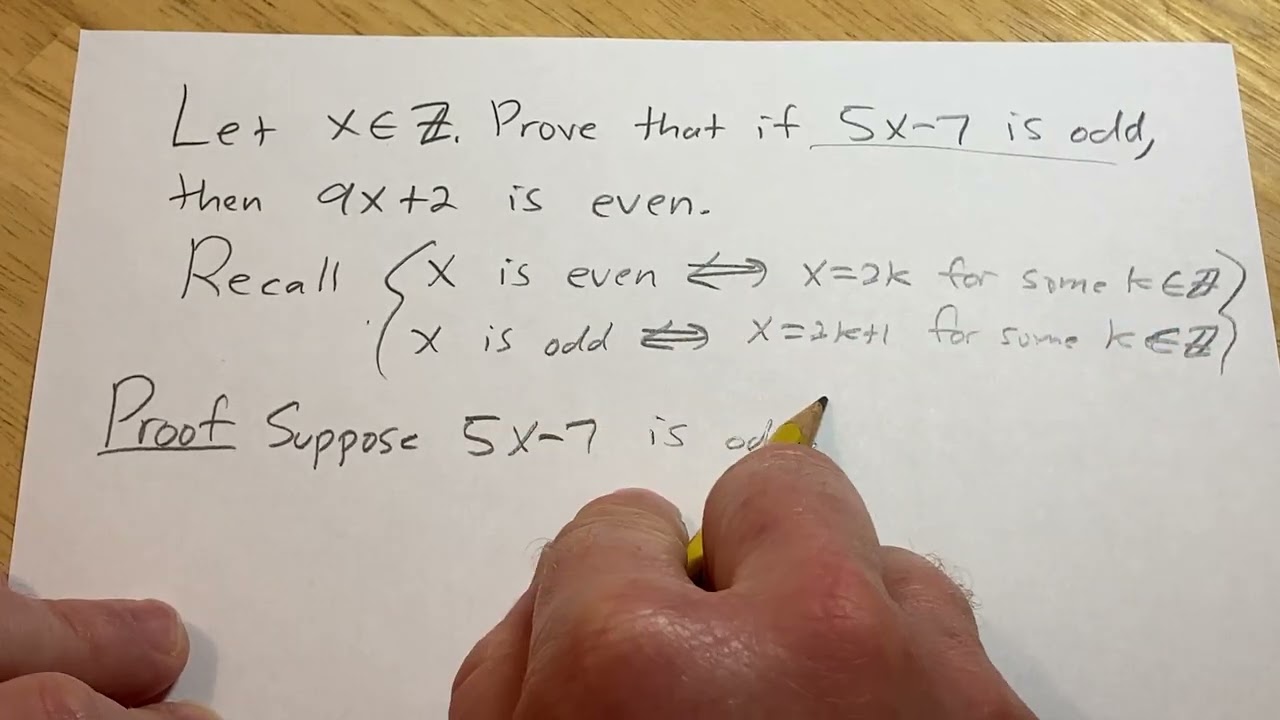 Let x∈ℤ. Prove that if 5x-7 is odd,
then 9x+2 is even.
Recall { x is even ⟺ x=2k for some k∈ℤ
x is odd ⟺ x=2k+1 for some k∈ℤ }
Proof Suppose 5x-7 is